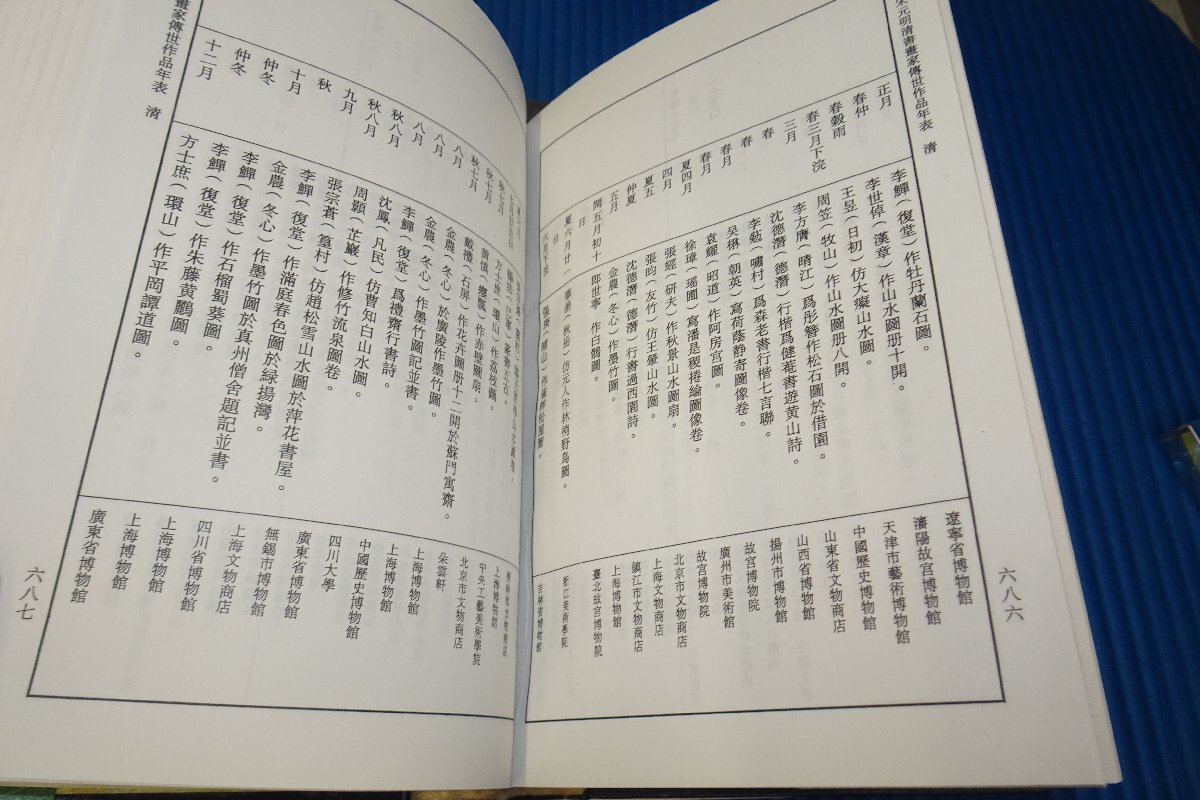 宋元明清書畫家傳世作品年表 清
正月 李鱓（復堂）作牡丹蘭石圖。 遼寧省博物館
春仲 李世倬（漢章）作山水圖册十開。 瀋陽故宮博物館
春穀雨 王昱（日初）仿大癡山水圖。 天津市藝術博物館
春三月下浣 周笠（牧山）作山水圖册八開。 中國歷史博物館
三月 李方膺（晴江）爲彤簪作松石圖於借園。 山東省文物商店
春 沈德潛（德潛）行楷爲健菴書遊黄山詩。 山西省博物館
春 李葂（嘯村）爲森老書行楷七言聯。 揚州市博物館
春月 吳楙（朝英）寫荷蔭静寄圖像卷。 故宮博物院
春月 袁耀（昭道）作阿房宮圖。 廣州市美術館
夏四月 徐璋（瑶圃）寫潘是稷捲綸圖像卷。 故宮博物院
四月 張經（研夫）作秋景山水圖扇。 北京市文物商店
夏五 張昀（友竹）仿王鞏山水圖。 上海文物商店
仲夏 沈德潛（德潛）行書過西園詩。 鎮江市文物商店
五月 金農（冬心）作墨竹圖。 上海博物館
閏五月初十日 郎世寧 作白鶴圖。 臺北故宮博物院
夏六月廿一日 華喦（秋岳）仿元人作林梢野鳥圖。 浙江美術學院
六月下浣 吉林省博物館
六八六
畫家傳世作品年表 清
七月廿五日
秋七月 方士庶（環山）作荔枝圖。 上海博物館
秋七月 黄慎（癭瓢）作赤壁圖扇。 中央工藝美術學院
八月 戴禮（石屏）作花卉圖册十二開於蘇門寓齋。 北京市文物商店
八月 金農（冬心）於廣陵作墨竹圖。 朵雲軒
八月 金農（冬心）作墨竹圖記並書。 上海博物館
秋八月 李鱓（復堂）爲禮齋行書詩。 上海博物館
秋八月 沈鳳（凡民）仿曹知白山水圖。 中國歷史博物館
九月 周顥（芷巖）作修竹流泉圖卷。 四川大學
秋 張宗蒼（篁村）仿趙松雪山水圖於萍花書屋。 廣東省博物館
李鱓（復堂）作滿庭春色圖於緑揚灣。 無錫市博物館
十月 金農（冬心）作墨竹圖於真州僧舍題記並書。 上海文物商店
仲冬 李鱓（復堂）作石榴蜀葵圖。 四川省博物館
仲冬 李鱓（復堂）作朱藤黄鸝圖。 上海博物館
上海博物館
十二月 方士庶（環山）作平岡譚道圖。 廣東省博物館
六八七